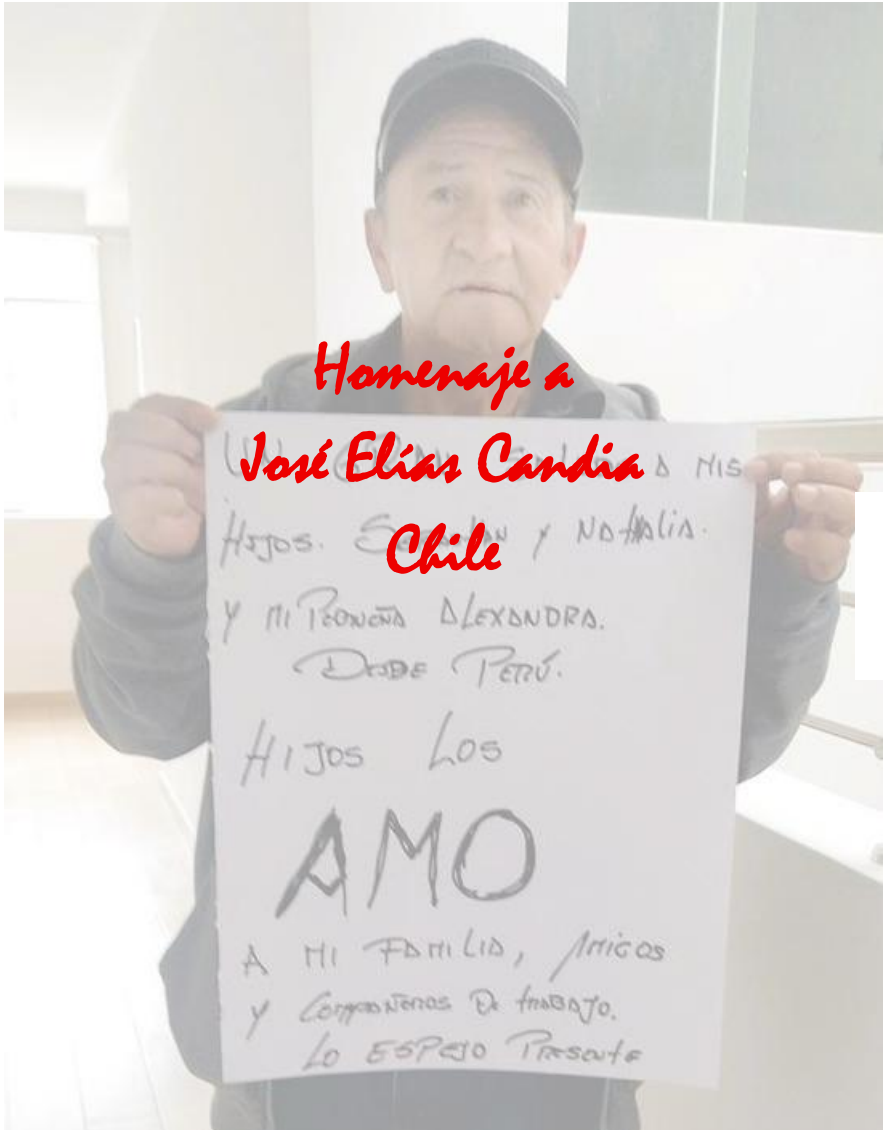 Homenaje a
José Elías Candia
Chile
UN GRAN A MIS
HIJOS. Y NATHALIA.
Y MI PEQUEÑA ALEXANDRA.
DESDE PERÚ.
HIJOS LOS
AMO
A MI FAMILIA, AMIGOS
Y COMPAÑEROS DE TRABAJO.
LO ESPEJO PRESENTE